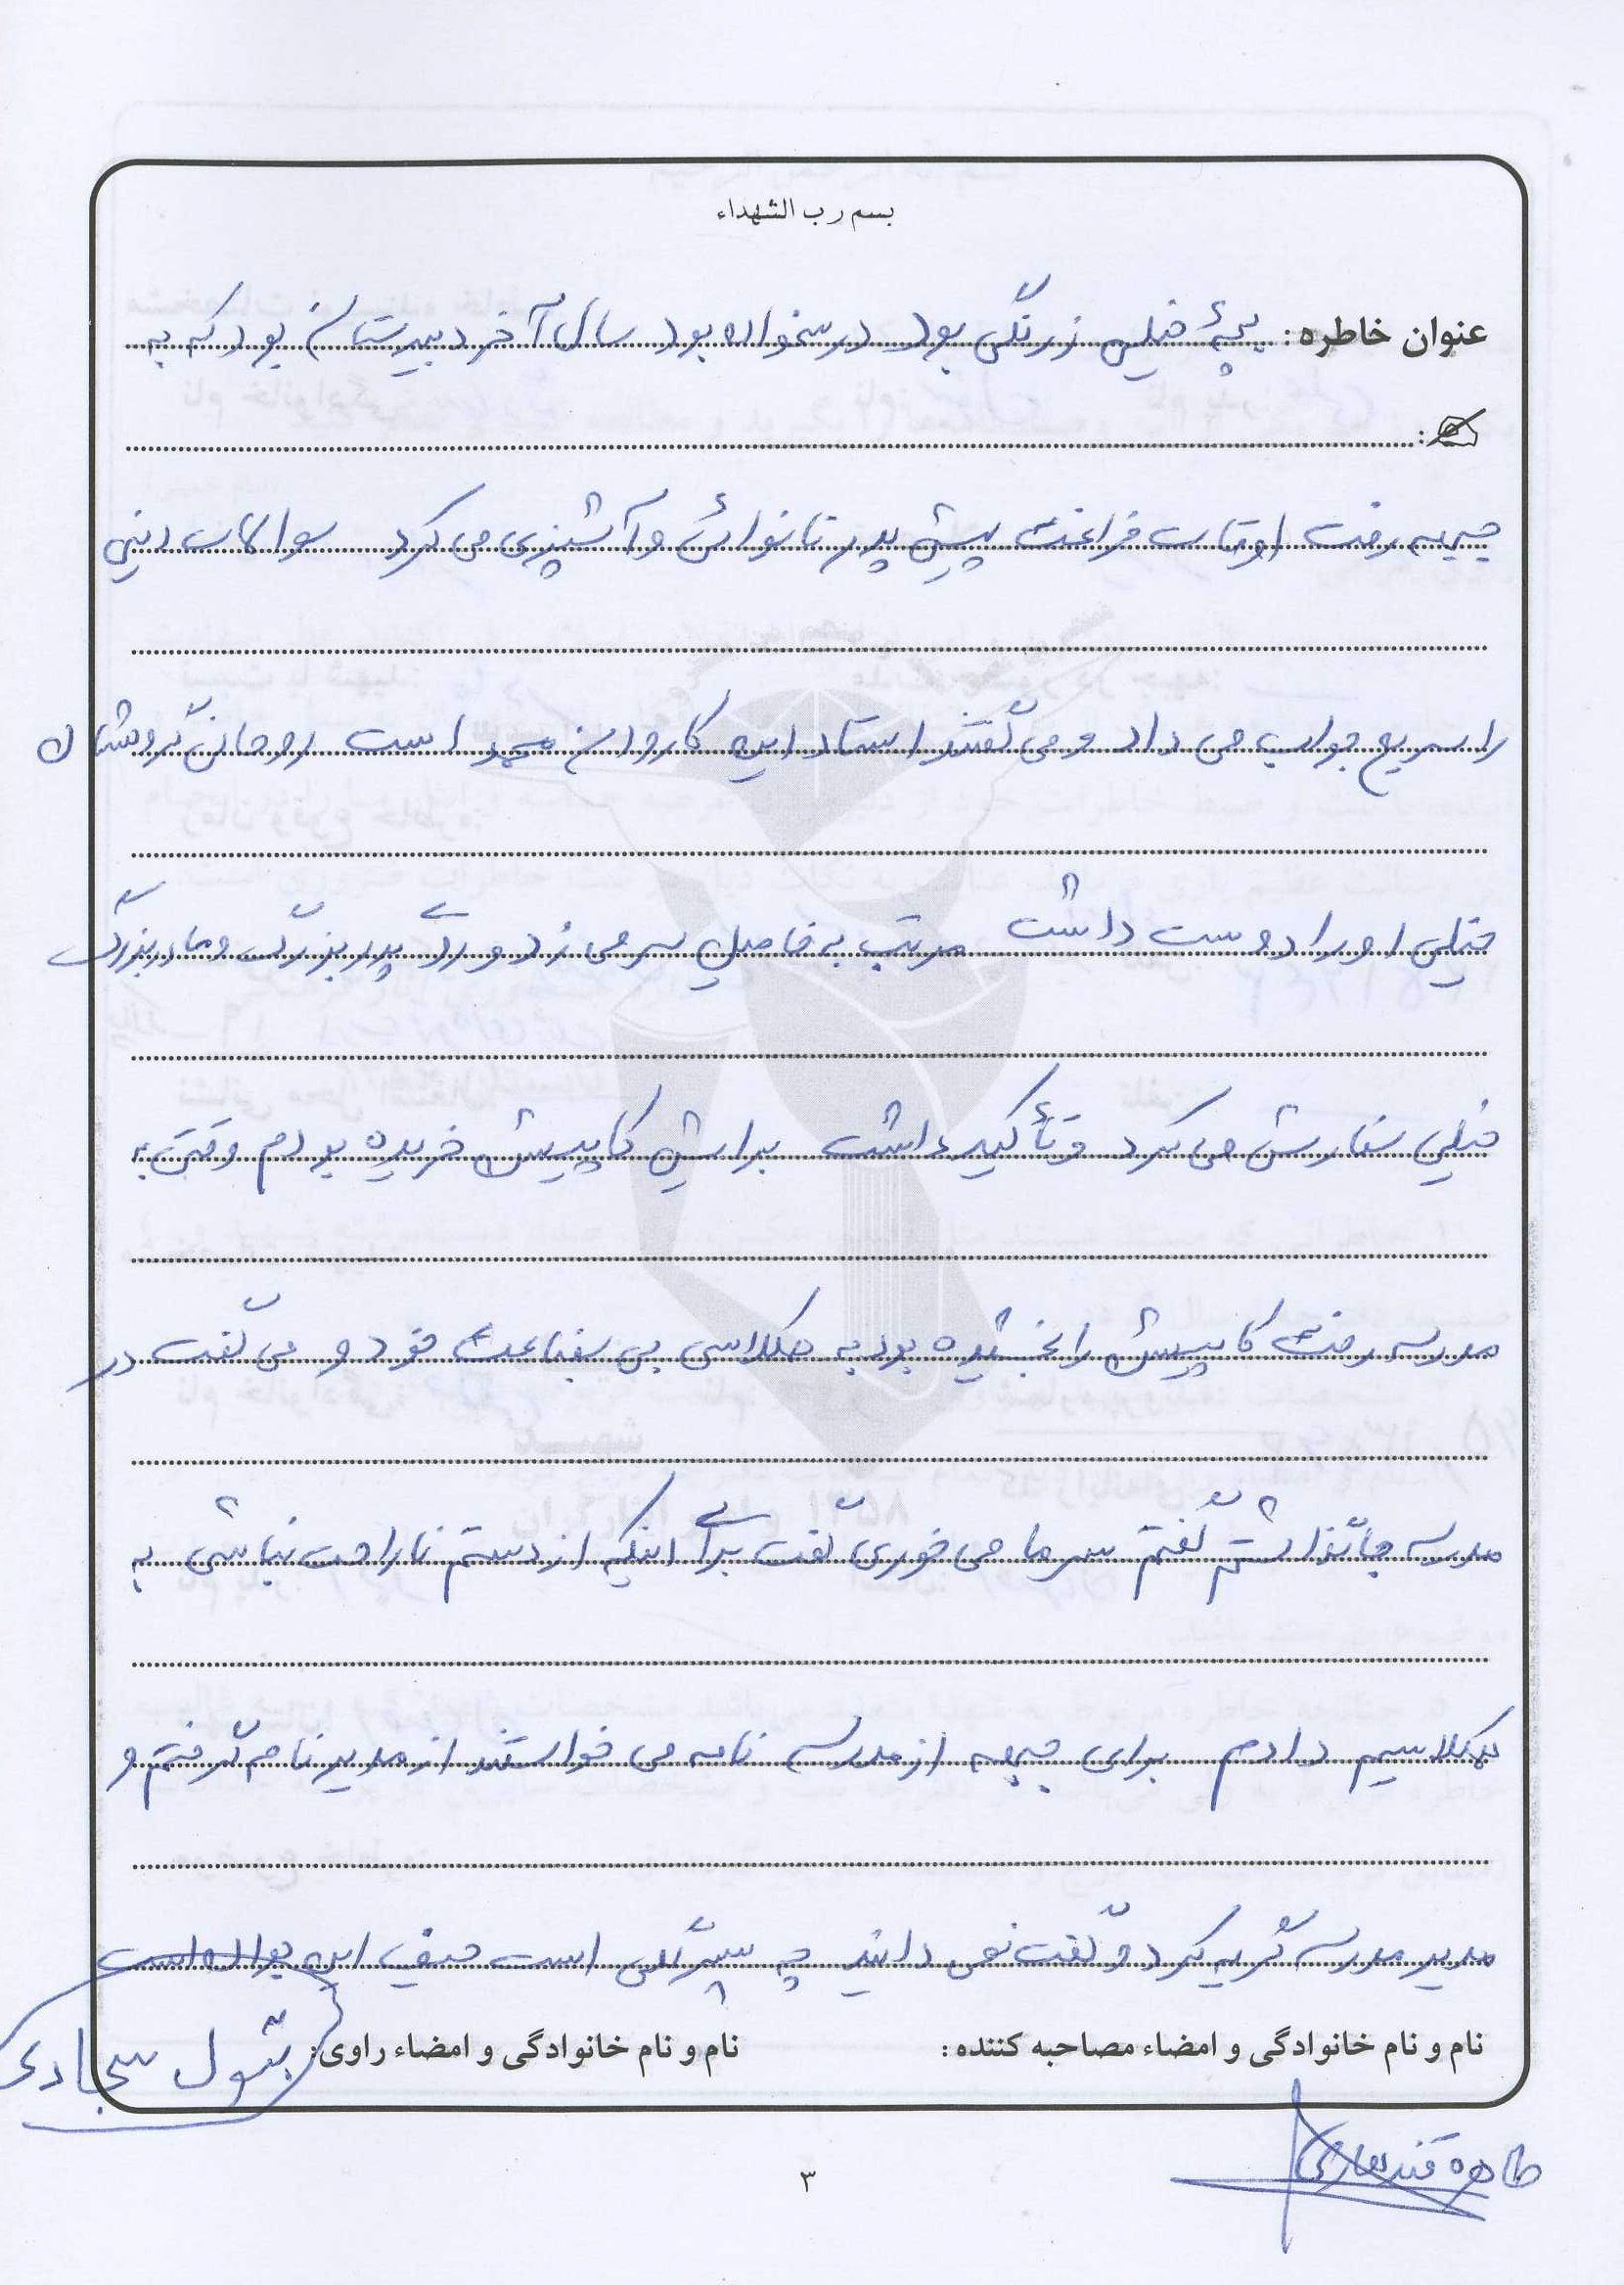 بسم رب الشهداء
عنوان خاطره: بچهٔ خیلی زرنگی بود درسخوان بود سال آخر دبیرستان بود که به
جبهه رفت اوقات فراغت پیش پدر نانوائی و آشپزی می کرد سوالات دینی
را سریع جواب می داد و می گفتند استاد این کاروان محمد است روحانی گروهشان
خیلی او را دوست داشت مرتب به فامیل سر می زد و روی پدربزرگ و مادربزرگ
خیلی سفارش می کرد و تأکید داشت برایش کاپیشن خریده بودم وقتی به
مدرسه رفت کاپیشن را بخشیده بود به همکلاسی بی بضاعت خود و می گفت در
مدرسه جا گذاشتم گفتم سرما می خوری گفت برای اینکه از دستم ناراحت نباشی به
همکلاسیم دادم برای جبهه از مدرسه نامه می خواستند از مدیر نامه گرفتم و
مدیر مدرسه گریه کرد و گفت نمی دانید چه پسر گلی است حیف این
نام و نام خانوادگی و امضاء مصاحبه کننده: نام و نام خانوادگی و امضاء راوی: بتول سجادی
طاهره قندهاری
۳